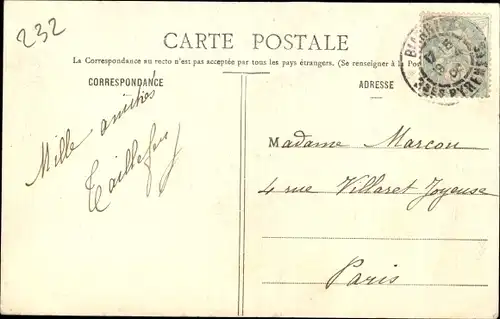 232
CARTE POSTALE
La Correspondance au recto n'est pas acceptée par tous les pays étrangers. (Se renseigner à la Post
CORRESPONDANCE
ADRESSE
Mille amitiés
Taillefer
Madame Marcou
4 rue Villaret Joyeuse
Paris